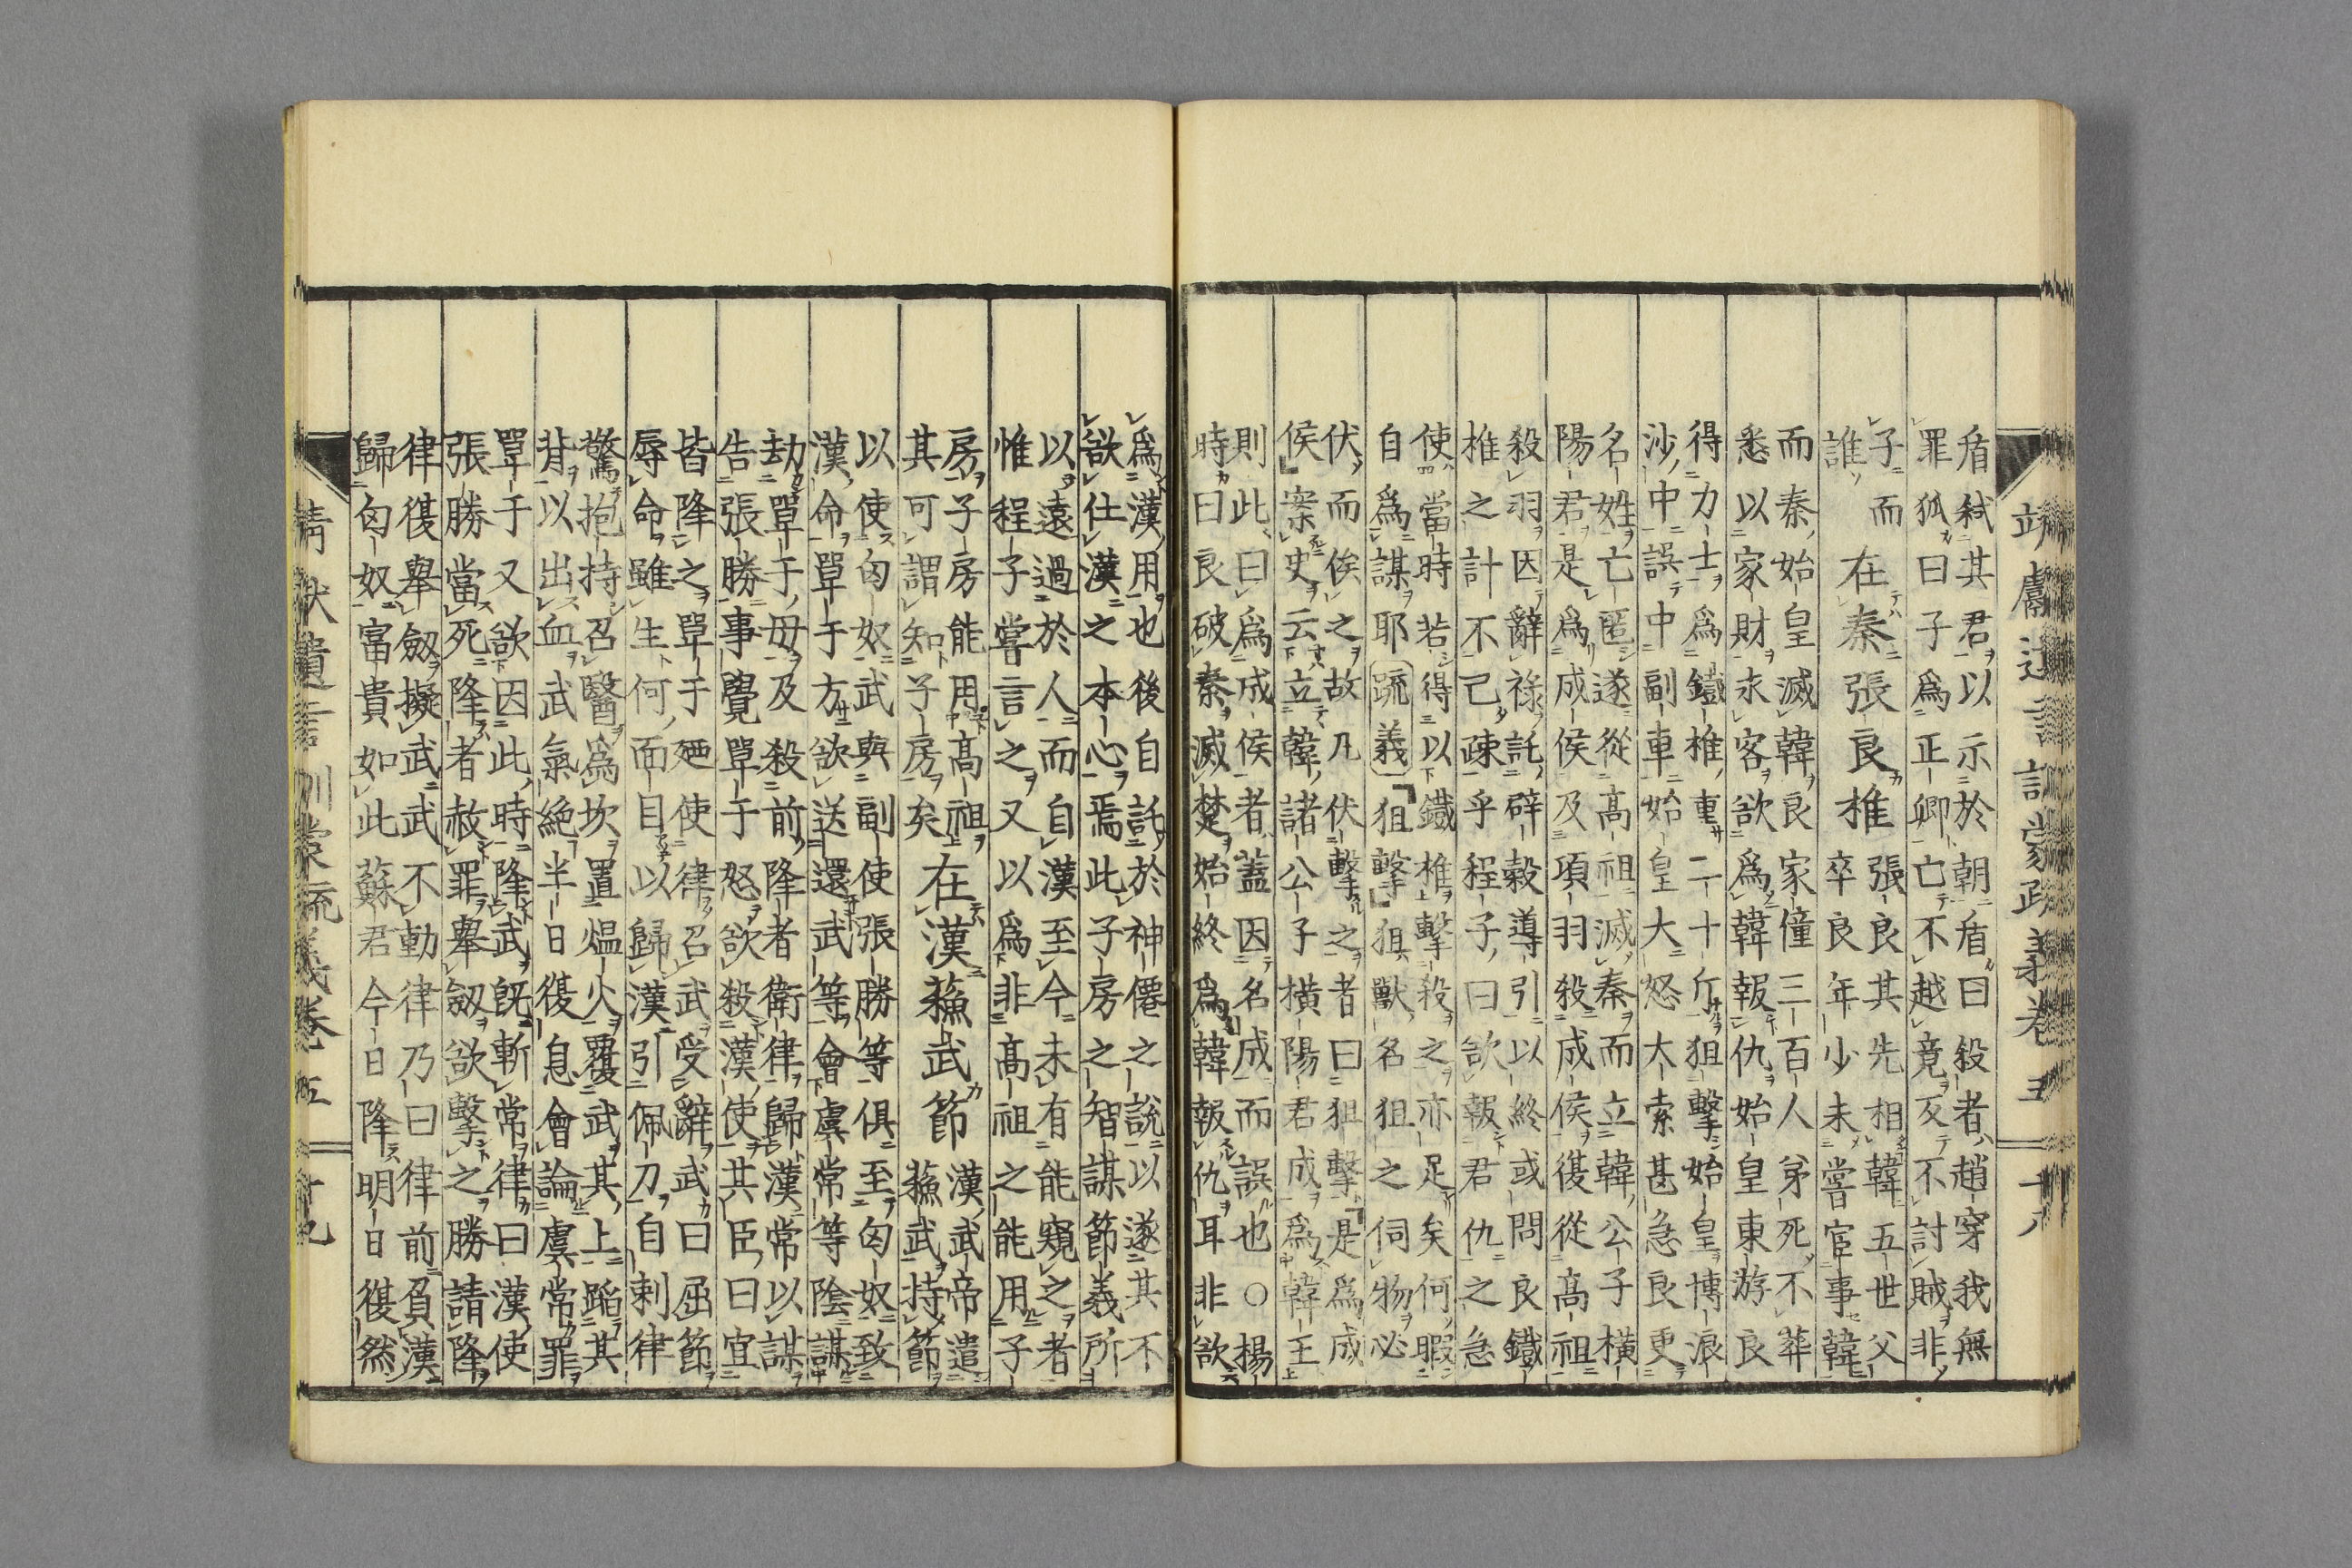 靖獻遺言訓蒙疏義卷五 十八
盾弑其君以示於朝盾曰殺者趙穿我無
罪狐曰子爲正卿亡不越竟反不討賊非
子而
誰
在秦張良椎
張良其先相韓五世父
卒良年少未嘗宦事韓
而秦始皇滅韓良家僮三百人弟死不葬
悉以家財求客欲爲韓報仇始皇東游良
得力士爲鐵椎重二十斤狙擊始皇博浪
沙中誤中副車始皇大怒大索甚急良更
名姓亡匿遂從高祖滅秦而立韓公子橫
陽君是爲成侯及項羽殺成侯復從高祖
殺羽因辭祿託辟穀導引以終或問良鐵
椎之計不已疎乎程子曰欲報君仇之急
使當時若得以鐵椎擊殺之亦足矣何暇
自爲謀耶〔疏義〕狙擊狙獸名狙之伺物必
伏而俟之故凡伏擊之者曰狙擊是爲成
侯案史云立韓諸公子橫陽君成爲韓王
則此曰爲成侯者蓋因名成而誤也○楊
時曰良破秦滅楚始終爲韓報仇耳非欲
爲漢用也後自託於神僊之說以遂其不
欲仕漢之本心焉此子房之智謀節義所
以遠過於人而自漢至今未有能窺之者
惟程子嘗言之又以爲非高祖之能用子
房子房能用高祖
其可謂知子房矣
在漢蘓武節
漢武帝遣
蘓武持節
以使匈奴武與副使張勝等俱至匈奴致
漢命單于方欲送還武等會虞常等陰謀
劫單于母及殺前降者衛律歸漢常以謀
告張勝事覺單于怒欲殺漢使其臣曰宜
皆降之單于廼使律召武受辭武曰屈節
辱命雖生何面目以歸漢引佩刀自刺律
驚抱持召醫爲坎置熅火覆武其上蹈其
背以出血武氣絶半日復息會論虞常罪
單于又欲因此時降武既斬常律曰漢使
張勝當死降者赦罪舉劔欲擊之勝請降
律復舉劔擬武武不動律乃曰律前負漢
歸匈奴富貴如此蘇君今日降明日復然
靖獻遺言訓蒙疏義卷五 十九